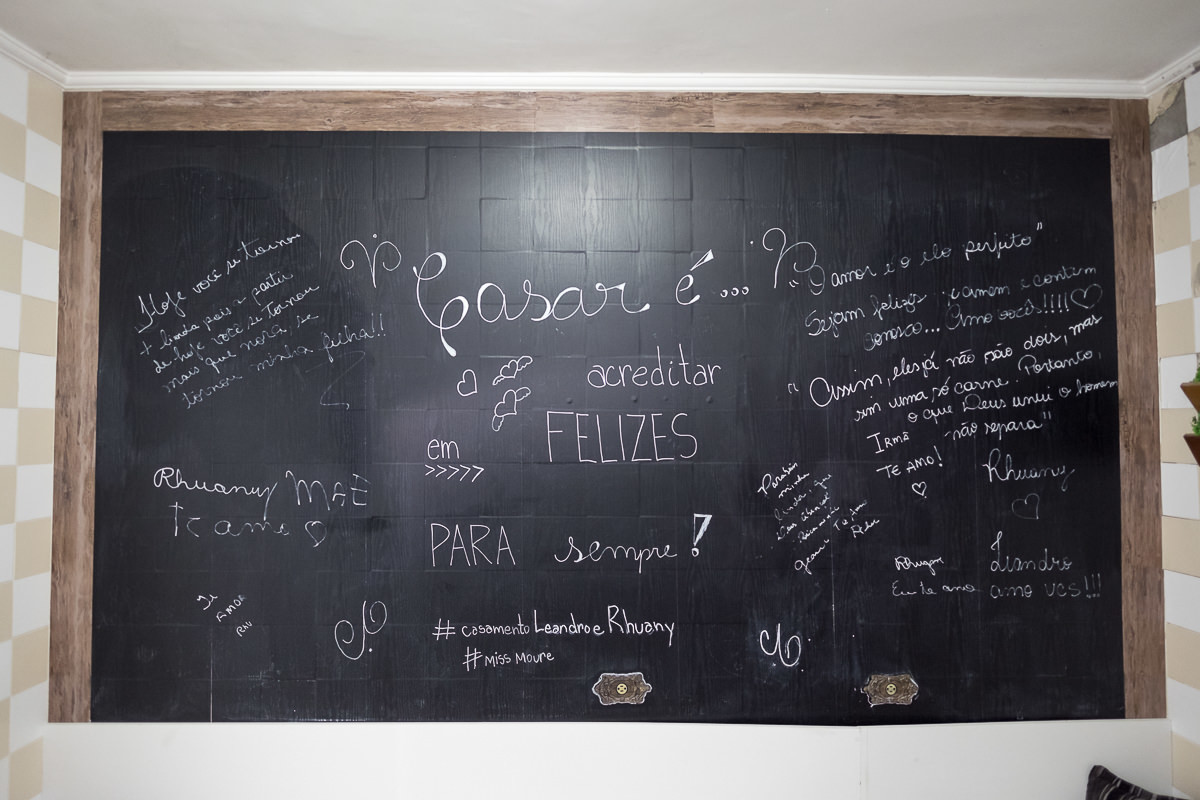 Casar é...
acreditar
em
FELIZES
>>>>>
PARA sempre!
# casamento Leandro e Rhuany
# MISS MOURE
Hoje você se tornou
+ linda pois a partir
de hoje você se tornou
mais que nora se
tornou minha filha!!
Rhuany MAE
Te amo
Te
AMOR
"O amor é o elo perfeito"
Sejam felizes
conosco... Amo vocês!!!!
"Assim, eles já não são dois, mas
sim uma só carne. Portanto,
o que Deus uniu o homem
não separa"
IRMÃ
TE AMO!
Rhuany
Parabéns
minha
linda
Te amo
Leandro
Eu te amo amo vcs!!!